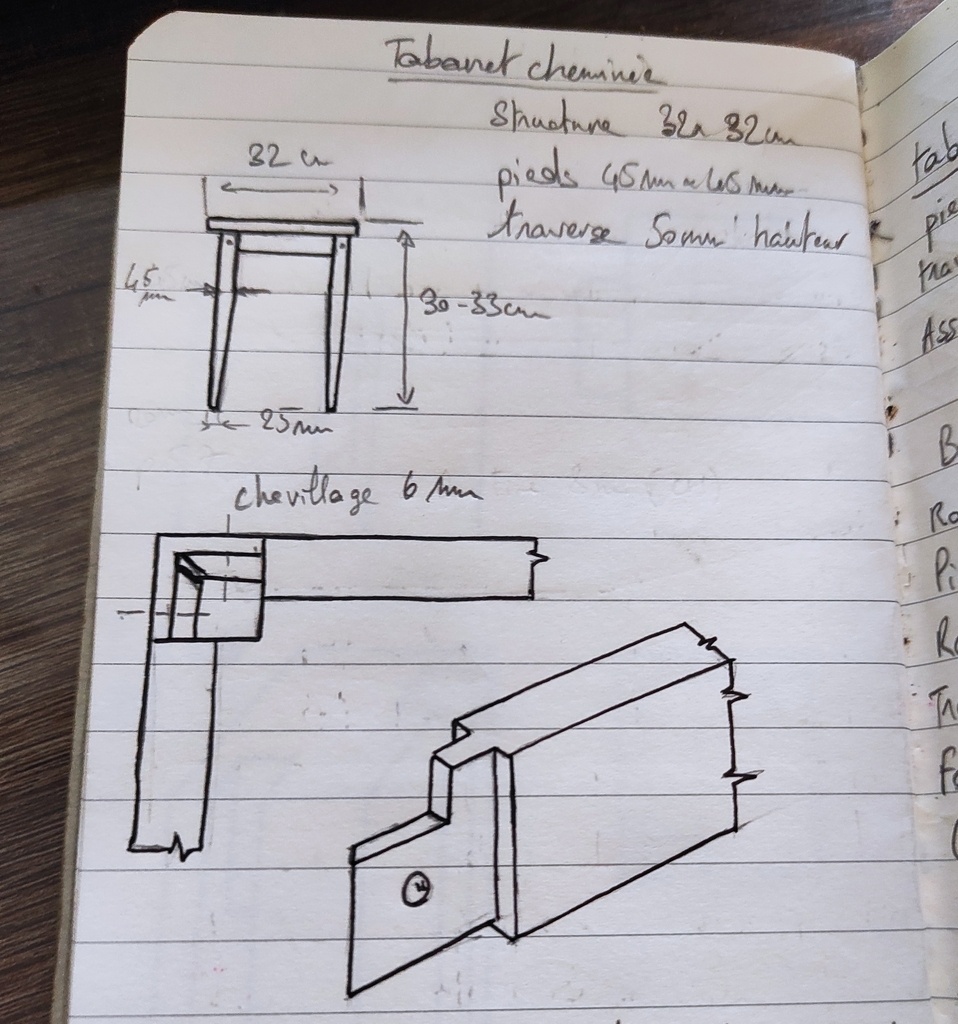 Tabouret cheminée
Structure 32x32cm
32 cm
pieds 45mm x 45mm
traverse 50mm hauteur
45 mm
30-33cm
25mm
chevillage 6mm
tab
pie
tra
Ass
B
Ro
Pi
Ro
Tr